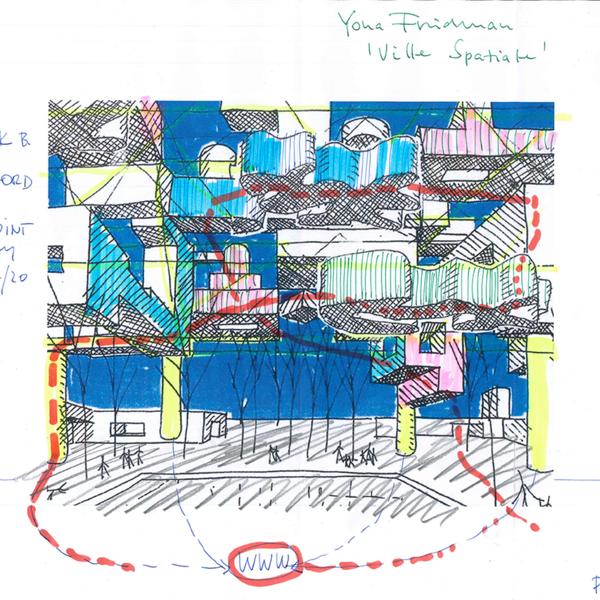 Yona Friedman
'Ville Spatiale'
K B.
ORD
OINT
M
/20
WWW